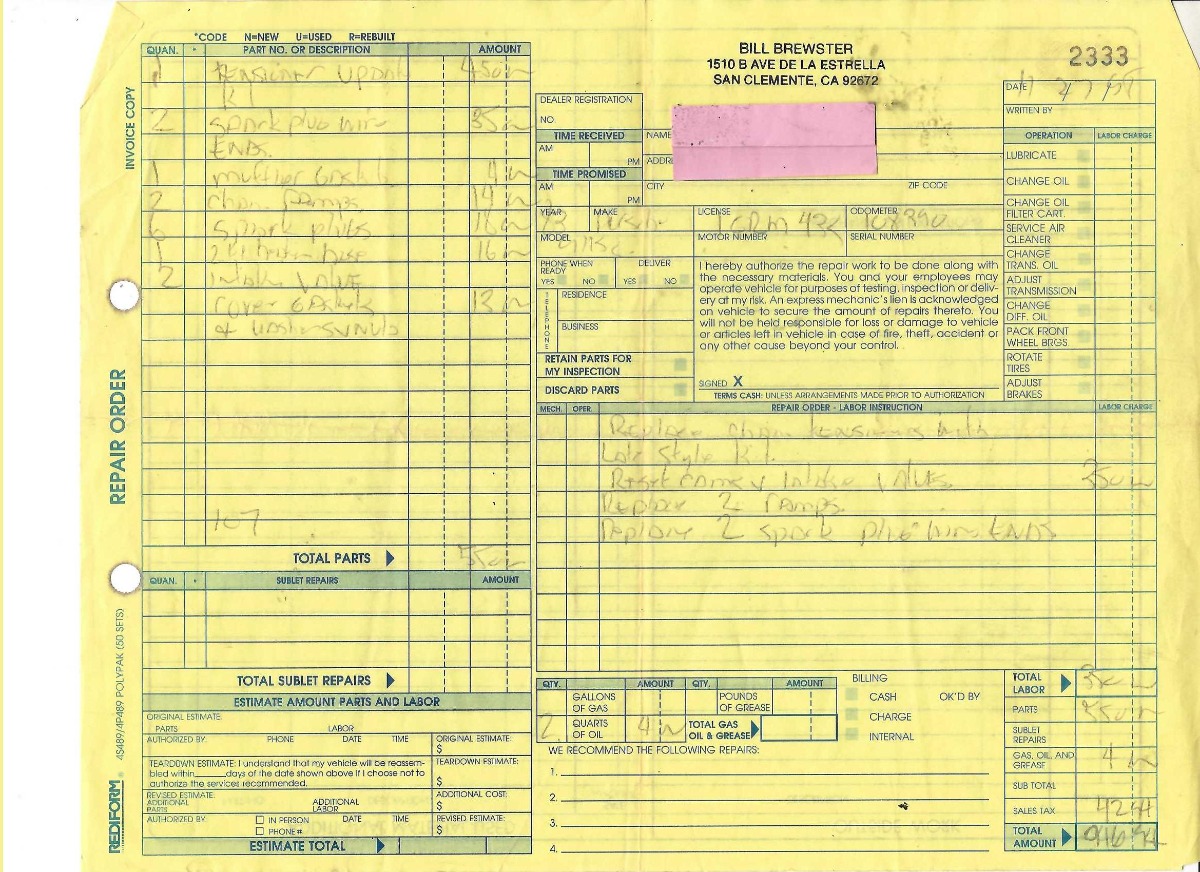 *CODE N=NEW U=USED R=REBUILT
QUAN. * PART NO. OR DESCRIPTION AMOUNT
1 tensioner update 450
Kit
2 spark plug wire 35
ENDS
1 muffler gasket 4
2 chain ramps 14
6 spark plugs 16
1 hose 16
2 intake VALVE
cover gaskets 13
& washers & nuts
107
TOTAL PARTS 550
QUAN. * SUBLET REPAIRS AMOUNT
TOTAL SUBLET REPAIRS
ESTIMATE AMOUNT PARTS AND LABOR
ORIGINAL ESTIMATE:
PARTS LABOR
AUTHORIZED BY: PHONE DATE TIME ORIGINAL ESTIMATE:
$
TEARDOWN ESTIMATE: I understand that my vehicle will be reassem-
bled within______days of the date shown above if I choose not to
authorize the services recommended.
TEARDOWN ESTIMATE:
$
REVISED ESTIMATE:
ADDITIONAL PARTS ADDITIONAL LABOR
ADDITIONAL COST:
$
AUTHORIZED BY: IN PERSON DATE TIME REVISED ESTIMATE:
PHONE # $
ESTIMATE TOTAL
INVOICE COPY
REPAIR ORDER
REDIFORM 4S489/4P489 POLYPAK (50 SETS)
BILL BREWSTER
1510 B AVE DE LA ESTRELLA
SAN CLEMENTE, CA 92672
2333
DATE
WRITTEN BY
DEALER REGISTRATION
NO.
TIME RECEIVED NAME
AM PM ADDR
TIME PROMISED
AM PM CITY ZIP CODE
YEAR MAKE LICENSE ODOMETER
MODEL MOTOR NUMBER SERIAL NUMBER
PHONE WHEN READY DELIVER
YES NO YES NO
TELEPHONE
RESIDENCE
BUSINESS
RETAIN PARTS FOR
MY INSPECTION
DISCARD PARTS
I hereby authorize the repair work to be done along with
the necessary materials. You and your employees may
operate vehicle for purposes of testing, inspection or deliv-
ery at my risk. An express mechanic's lien is acknowledged
on vehicle to secure the amount of repairs thereto. You
will not be held responsible for loss or damage to vehicle
or articles left in vehicle in case of fire, theft, accident or
any other cause beyond your control.
SIGNED X
TERMS CASH: UNLESS ARRANGEMENTS MADE PRIOR TO AUTHORIZATION
OPERATION LABOR CHARGE
LUBRICATE
CHANGE OIL
CHANGE OIL
FILTER CART.
SERVICE AIR
CLEANER
CHANGE
TRANS. OIL
ADJUST
TRANSMISSION
CHANGE
DIFF. OIL
PACK FRONT
WHEEL BRGS.
ROTATE
TIRES
ADJUST
BRAKES
MECH. OPER. REPAIR ORDER - LABOR INSTRUCTION LABOR CHARGE
Replace chain tensioners with
Late Style Kit.
Reset cams & intake VALVES 350
Replace 2 ramps
Replace 2 spark plug wire ENDS
QTY. AMOUNT QTY. AMOUNT
GALLONS OF GAS POUNDS OF GREASE
2 QUARTS OF OIL 4 TOTAL GAS OIL & GREASE
BILLING
CASH OK'D BY
CHARGE
INTERNAL
WE RECOMMEND THE FOLLOWING REPAIRS:
1.
2.
3.
4.
TOTAL LABOR 350
PARTS 550
SUBLET REPAIRS
GAS, OIL AND GREASE 4
SUB TOTAL
SALES TAX 42
TOTAL AMOUNT 946